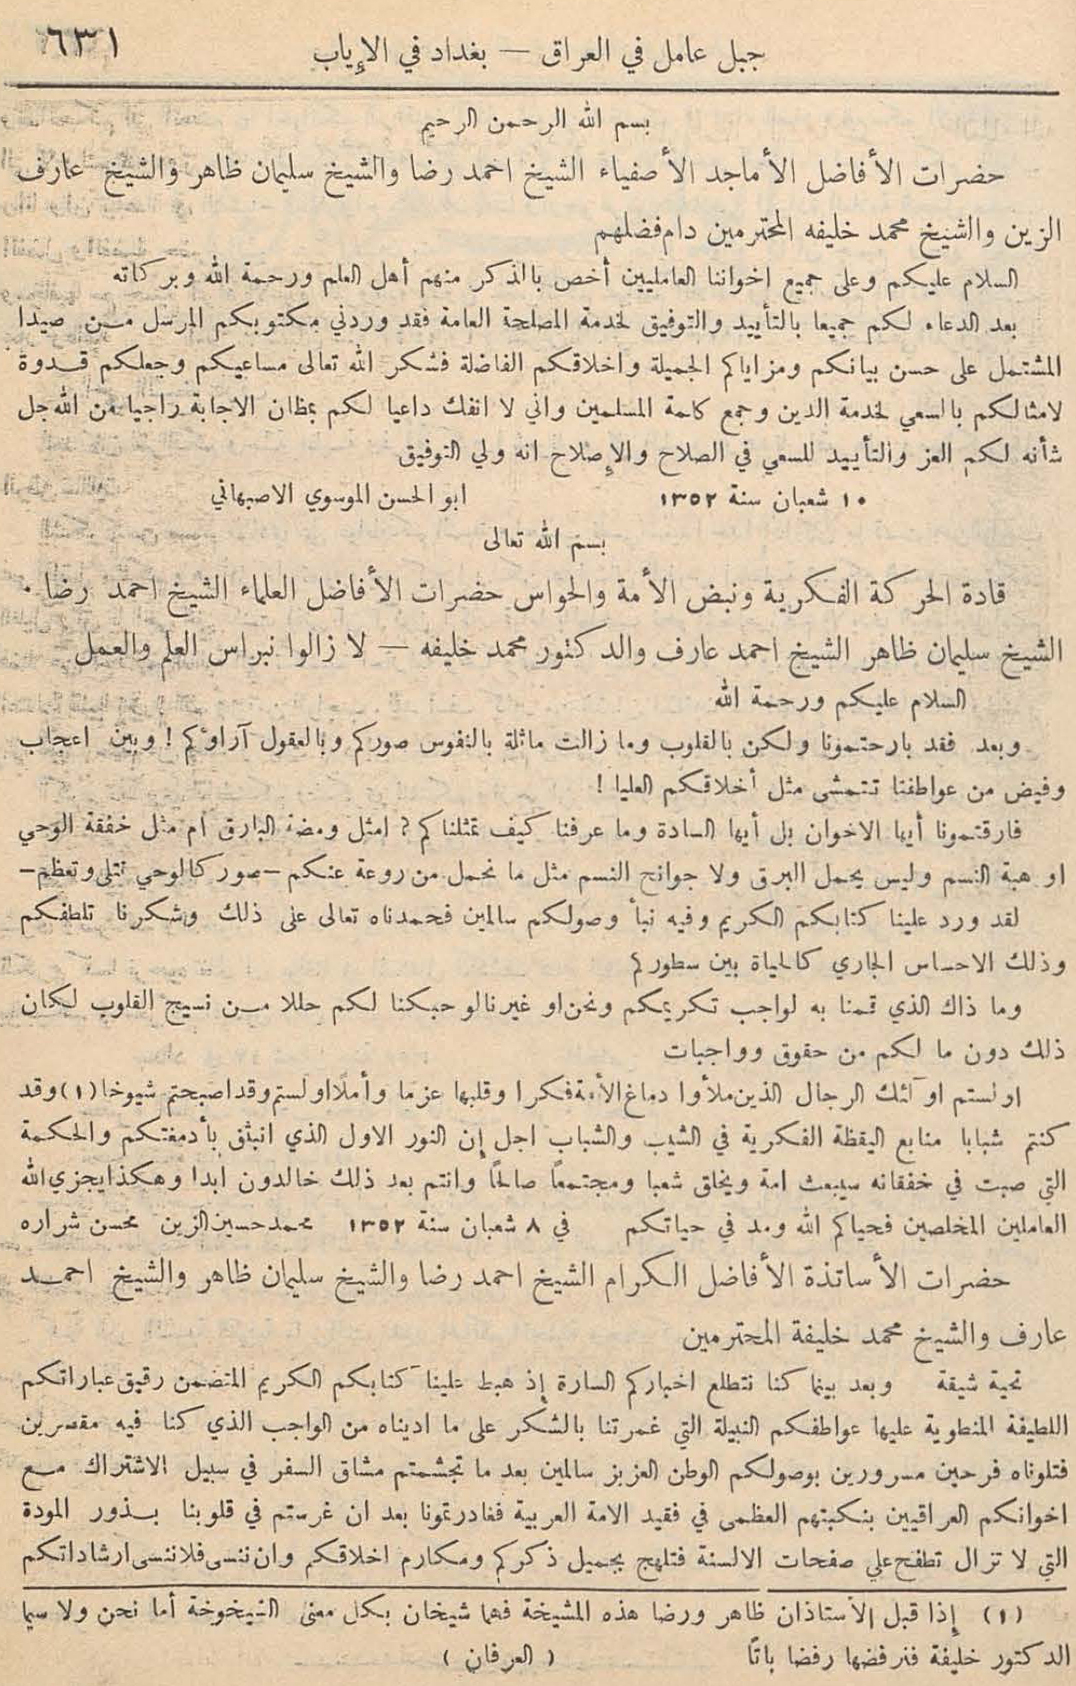 جبل عامل في العراق — بغداد في الإياب ٦٣١
بسم الله الرحمن الرحيم
حضرات الأفاضل الأماجد الأصفياء الشيخ احمد رضا والشيخ سليمان ظاهر والشيخ عارف
الزين والشيخ محمد خليفه المحترمين دام فضلهم
السلام عليكم وعلى جميع اخواننا العامليين أخص بالذكر منهم أهل العلم ورحمة الله وبركاته
بعد الدعاء لكم جميعا بالتأييد والتوفيق لخدمة المصلحة العامة فقد وردني مكتوبكم المرسل من صيدا
المشتمل على حسن بيانكم ومزاياكم الجميلة واخلاقكم الفاضلة فشكر الله تعالى مساعيكم وجعلكم قدوة
لامثالكم بالسعي لخدمة الدين وجمع كلمة المسلمين واني لا انفك داعيا لكم بمظان الاجابة راجيا من الله جل
شأنه لكم العز والتأييد للسعي في الصلاح والإصلاح انه ولي التوفيق
١٠ شعبان سنة ١٣٥٢ ابو الحسن الموسوي الاصبهاني
بسم الله تعالى
قادة الحركة الفكرية ونبض الأمة والحواس حضرات الأفاضل العلماء الشيخ احمد رضا .
الشيخ سليمان ظاهر الشيخ احمد عارف والدكتور محمد خليفه — لا زالوا نبراس العلم والعمل
السلام عليكم ورحمة الله
وبعد فقد بارحتمونا ولكن بالقلوب وما زالت ماثلة بالنفوس صوركم وبالعقول آراؤكم ! وبين اعجاب
وفيض من عواطفنا تتمشى مثل أخلاقكم العليا !
فارقتمونا أيها الاخوان بل أيها السادة وما عرفنا كيف تمثلناكم ؟ امثل ومضة البارق ام مثل خفقة الوحي
او هبة النسم وليس يحمل البرق ولا جوانح النسم مثل ما نحمل من روعة عنكم – صور كالوحي تتلى وتعظم –
لقد ورد علينا كتابكم الكريم وفيه نبأ وصولكم سالمين فحمدناه تعالى على ذلك وشكرنا تلطفكم
وذلك الاحساس الجاري كالحياة بين سطوركم
وما ذاك الذي قمنا به لواجب تكريمكم ونحن او غيرنا لو حبكنا لكم حللا من نسيج القلوب لكان
ذلك دون ما لكم من حقوق وواجبات
اولستم اولئك الرجال الذين ملأوا دماغ الأمة فكرا وقلبها عزما وأملا اولستم وقد اصبحتم شيوخا (١) وقد
كنتم شبابا منابع اليقظة الفكرية في الشيب والشباب اجل إن النور الاول الذي انبثق بأدمغتكم والحكمة
التي صبت في خفقانه سيبعث امة ويخلق شعبا ومجتمعاً صالحاً وانتم بعد ذلك خالدون ابدا وهكذا يجزي الله
العاملين المخلصين فحياكم الله ومد في حياتكم في ٨ شعبان سنة ١٣٥٢ محمد حسين الزين محسن شراره
حضرات الأساتذة الأفاضل الكرام الشيخ احمد رضا والشيخ سليمان ظاهر والشيخ احمد
عارف والشيخ محمد خليفة المحترمين
تحية شيقة وبعد بينما كنا نتطلع اخباركم السارة إذ هبط علينا كتابكم الكريم المتضمن رقيق عباراتكم
اللطيفة المنطوية عليها عواطفكم النبيلة التي غمرتنا بالشكر على ما اديناه من الواجب الذي كنا فيه مقصرين
فتلوناه فرحين مسرورين بوصولكم الوطن العزيز سالمين بعد ما تجشمتم مشاق السفر في سبيل الاشتراك مع
اخوانكم العراقيين بنكبتهم العظمى في فقيد الامة العربية فغادرتمونا بعد ان غرستم في قلوبنا بذور المودة
التي لا تزال تطفح علي صفحات الالسنة فتلهج بجميل ذكركم ومكارم اخلاقكم وان ننسى فلا ننسى ارشاداتكم
(١) إذا قبل الأستاذان ظاهر ورضا هذه المشيخة فهما شيخان بكل معنى الشيخوخة أما نحن ولا سيما
الدكتور خليفة فنرفضها رفضا باتًا ( العرفان )